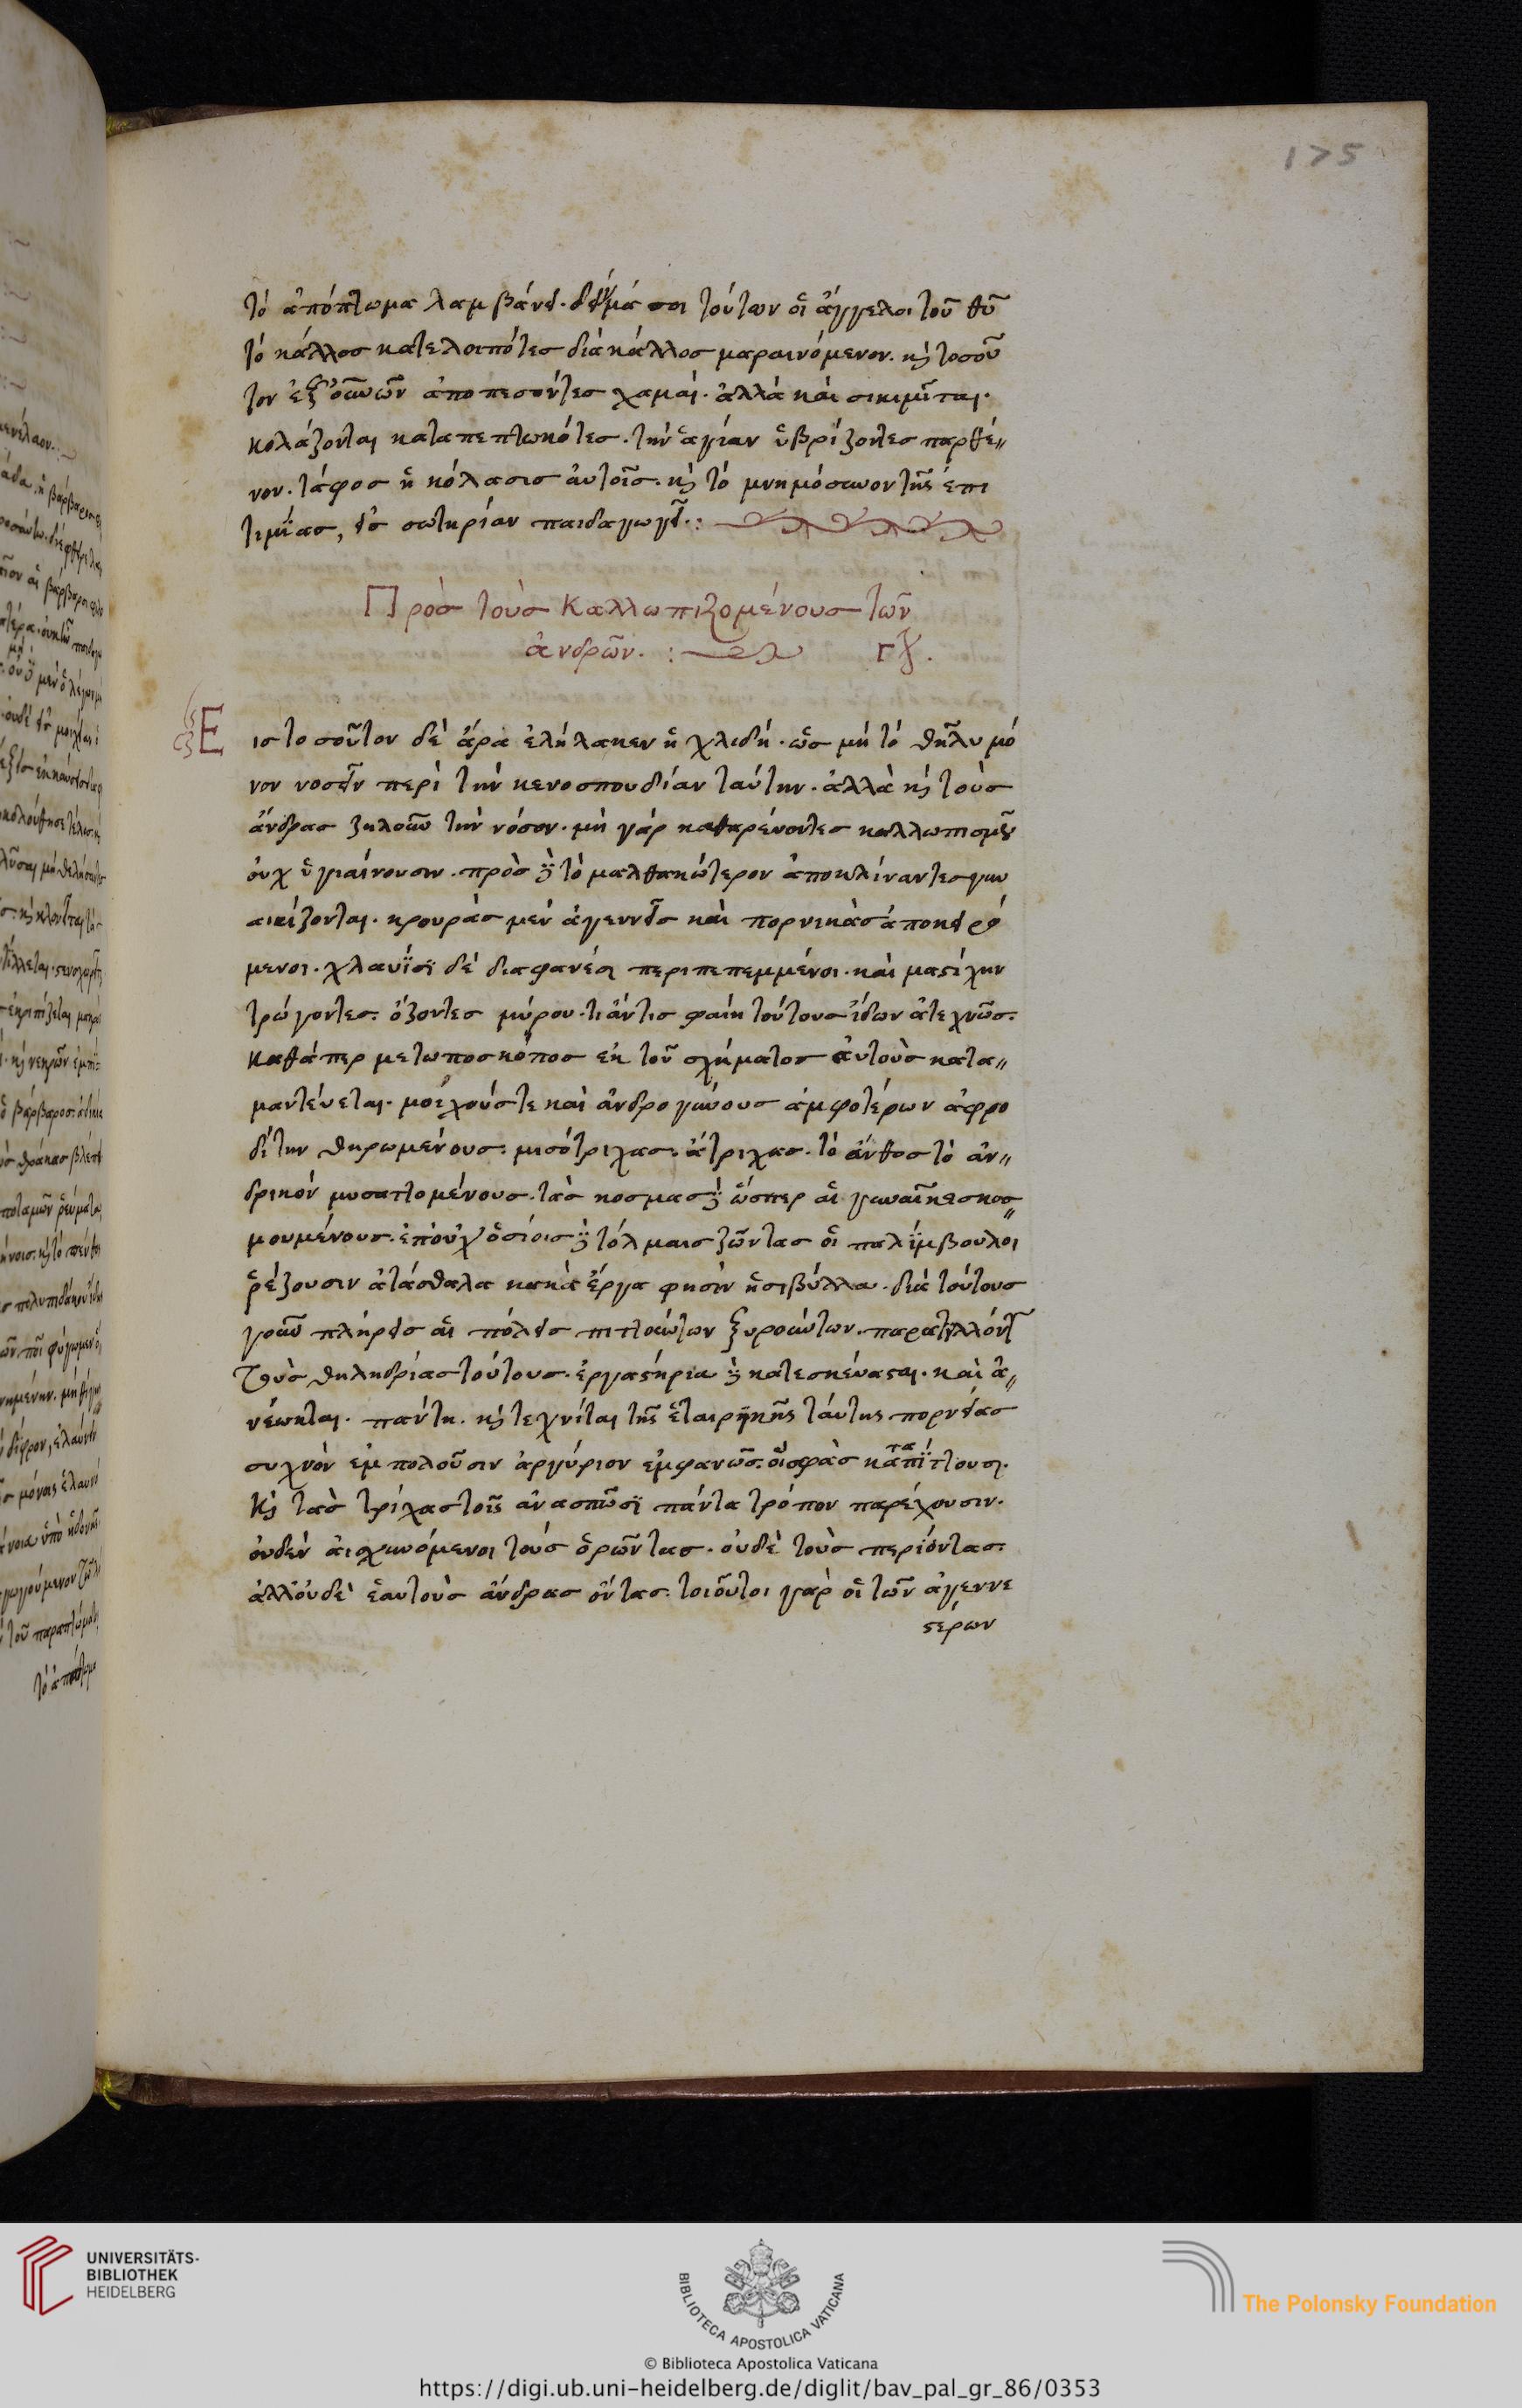 175
τὸ ἀπόπτωμα λαμβάνει. δεῖγμά σοι τούτων οἱ ἄγγελοι τοῦ θυ
τὸ κάλλος καταλελοιπότες διὰ κάλλος μαραινόμενον. κỳ τοσοῦ
τον ἐξ οὐνῶν ἀποπεσόντες χαμαί. ἀλλὰ καὶ σικιμῖται.
κολάζονται καταπεπτωκότες. τὴν ἁγίαν ὑβρίζοντες παρθέ〃
νον. τάφος ἡ κόλασις αὐτοῖς. κỳ τὸ μνημόσυνον τῆς ἐπι
τιμίας, εἰς σωτηρίαν παιδαγωγεῖ.:
Πρὸς τοὺς Καλλωπιζομένους τῶν
ἀνδρῶν. :
Εἰς τοσοῦτον δὲ ἄρα ἐλήλακεν ἡ χλιδή. ὡς μὴ τὸ θῆλυ μό
νον νοσεῖν περὶ τὴν κενοσπουδίαν ταύτην. ἀλλὰ κỳ τοὺς
ἄνδρας ζηλοῦν τὴν νόσον. μὴ γὰρ καθαρεύοντες καλλωπισμοῦ
οὐχ ὑγιαίνουσιν. πρὸς δὲ τὸ μαλθακώτερον ἀποκλίναντες γυν
αικίζονται. κρουρὰς μὲν ἀγεννεῖς καὶ πορνικὰς ἀποκειρό
μενοι. χλανίσι δὲ διαφανέσι περιπεπεμμένοι. καὶ μαστίχην
τρώγοντες. ὄζοντες μύρου. τί ἄν τις φαίη τούτους ἰδων ἀτεχνῶς.
Καθάπερ μετωποσκόπος ἐκ τοῦ σχήματος αὐτοὺς κατα〃
μαντεύεται. μοιχούς τε καὶ ἀνδρογύνους ἀμφοτέρων ἀφρο
δίτην θηρωμένους. μισότριχας. ἄτριχας. τὸ ἄνθος τὸ ἀν〃
δρικὸν μυσαττομένους. τὰς κόσμας δὲ ὥσπερ αἱ γυναῖκες κοσ〃
μουμένους. ἐπ' οὐχ' ὁσίοις δὲ τόλμαις ζῶντας οἱ παλίμβουλοι
ῥέζουσιν ἀτάσθαλα κακὰ ἔργα φησὶν ἡ σιβύλλα. διὰ τούτους
γοῦν πλήρεις αἱ πόλεις πιττούντων ξυρούντων. παρατιλλόντων
Τοὺς θηλυδρίας τούτους. ἐργαστήρια δὲ κατεσκεύασται. καὶ ἀ〃
νέωκται. πάντη. κỳ τεχνίται τῆς ἑταιρικῆς ταύτης πορνείας
συχνὸν ἐμπολοῦσιν ἀργύριον ἐμφανῶς. οἳ σφᾶς καταπίττουσι.
Κỳ τὰς τρίχας τοῖς ἀνασπῶσι πάντα τρόπον παρέχουσιν.
οὐδὲν αἰσχυνόμενοι τοὺς ὁρῶντας. οὐδὲ τοὺς περιόντας.
ἀλλ' οὐδὲ ἑαυτοὺς ἄνδρας ὄντας. τοιοῦτοι γὰρ οἱ τῶν ἀγεννε
στέρων
UNIVERSITÄTS-
BIBLIOTHEK
HEIDELBERG
BIBLIOTECA APOSTOLICA VATICANA
The Polonsky Foundation
© Biblioteca Apostolica Vaticana
https://digi.ub.uni-heidelberg.de/diglit/bav_pal_gr_86/0353